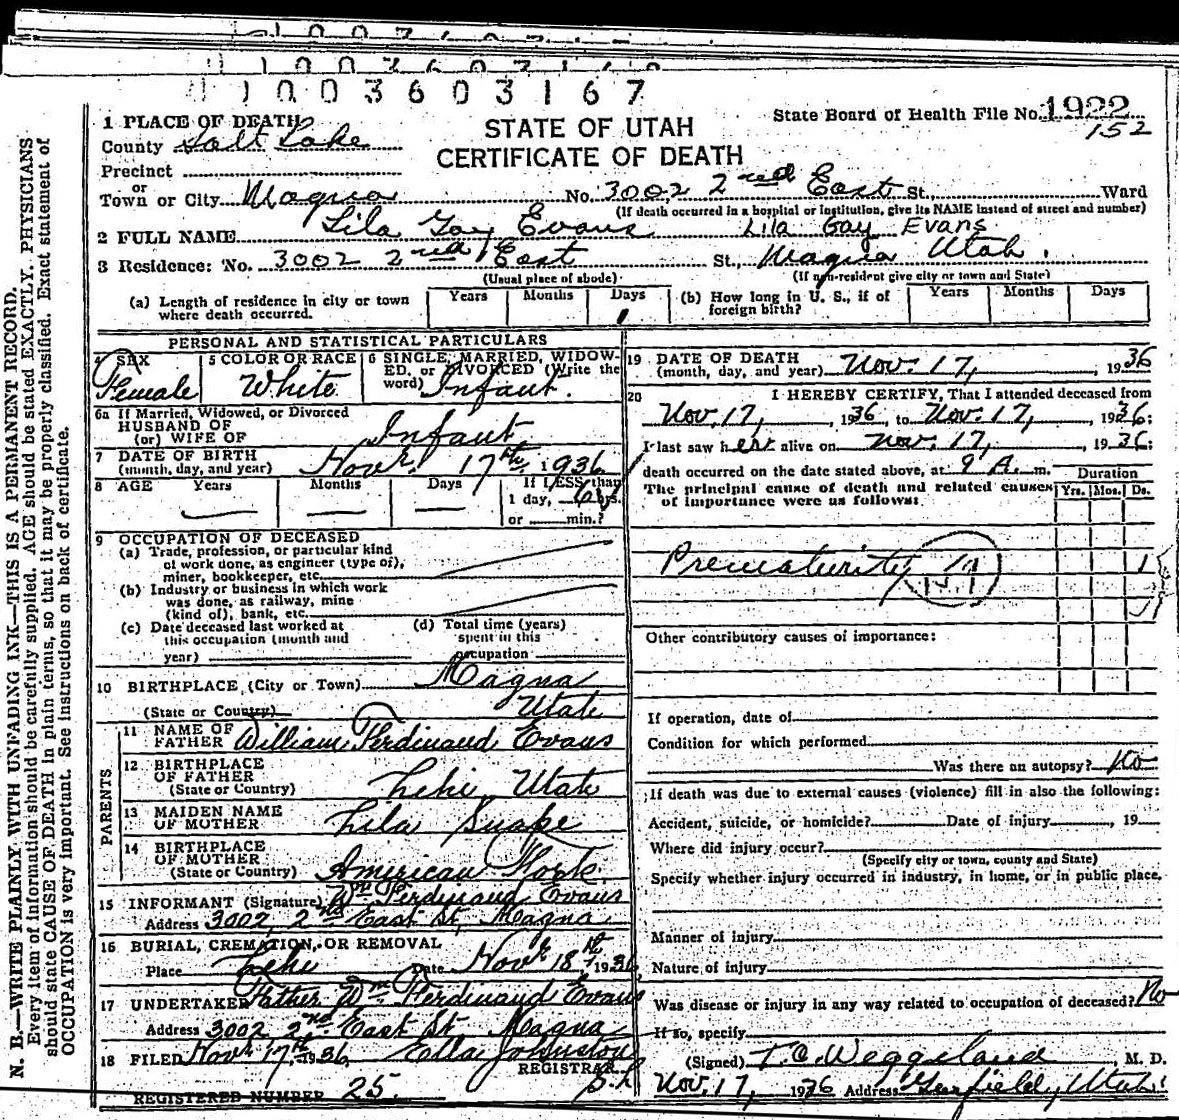 1 0 0 3 6 0 3 1 6 7
State Board of Health File No. 1922
152
STATE OF UTAH
CERTIFICATE OF DEATH
1 PLACE OF DEATH
County Salt Lake
Precinct
or
Town or City Magna No. 3002 2nd East St. Ward
(If death occurred in a hospital or institution, give its NAME instead of street and number)
2 FULL NAME Lila Gay Evans Lila Gay Evans
3 Residence: No. 3002 2nd East St., Magna Utah.
(Usual place of abode) (If non-resident give city or town and State)
(a) Length of residence in city or town where death occurred. Years Months Days 1 (b) How long in U. S., if of foreign birth? Years Months Days
PERSONAL AND STATISTICAL PARTICULARS
4 SEX Female
5 COLOR OR RACE White
6 SINGLE, MARRIED, WIDOWED, or DIVORCED (Write the word) Infant
6a If Married, Widowed, or Divorced
HUSBAND OF
(or) WIFE OF Infant
7 DATE OF BIRTH
(month, day, and year) Novr. 17th 1936
8 AGE Years Months Days If LESS than
1 day, 6 hrs.
or min.?
9 OCCUPATION OF DECEASED
(a) Trade, profession, or particular kind
of work done, as engineer (type of),
miner, bookkeeper, etc.
(b) Industry or business in which work
was done, as railway, mine
(kind of), bank, etc.
(c) Date deceased last worked at
this occupation (month and
year)
(d) Total time (years)
spent in this
occupation
10 BIRTHPLACE (City or Town) Magna
(State or Country) Utah
PARENTS
11 NAME OF
FATHER William Ferdinand Evans
12 BIRTHPLACE
OF FATHER
(State or Country) Lehi Utah
13 MAIDEN NAME
OF MOTHER Lila Snape
14 BIRTHPLACE
OF MOTHER
(State or Country) American Fork.
15 INFORMANT (Signature) Wm Ferdinand Evans
Address 3002, 2nd East St, Magna
16 BURIAL, CREMATION, OR REMOVAL
Place Lehi Date Novr 18th 1936
17 UNDERTAKER Father Wm Ferdinand Evans
Address 3002, 2nd East St Magna
18 FILED Novr 17th 1936 Ella Johnston
REGISTRAR
REGISTERED NUMBER 25.
19 DATE OF DEATH
(month, day, and year) Nov. 17, 1936
20 I HEREBY CERTIFY, That I attended deceased from
Nov. 17, 1936, to Nov. 17, 1936;
I last saw her alive on Nov. 17, 1936;
death occurred on the date stated above, at 9 A. m.
The principal cause of death and related causes
of importance were as follows:
Duration
Yrs. Mos. Ds.
Prematurity 1
Other contributory causes of importance:
If operation, date of
Condition for which performed
Was there an autopsy? No
If death was due to external causes (violence) fill in also the following:
Accident, suicide, or homicide? Date of injury , 19
Where did injury occur?
(Specify city or town, county and State)
Specify whether injury occurred in industry, in home, or in public place.
Manner of injury
Nature of injury
Was disease or injury in any way related to occupation of deceased? No
If so, specify
(Signed) T. C. Weggeland, M. D.
Nov. 17, 1936 Address Garfield, Utah.
N. B.—WRITE PLAINLY WITH UNFADING INK—THIS IS A PERMANENT RECORD.
Every item of information should be carefully supplied. AGE should be stated EXACTLY. PHYSICIANS
should state CAUSE OF DEATH in plain terms, so that it may be properly classified. Exact statement of
OCCUPATION is very important. See instructions on back of certificate.